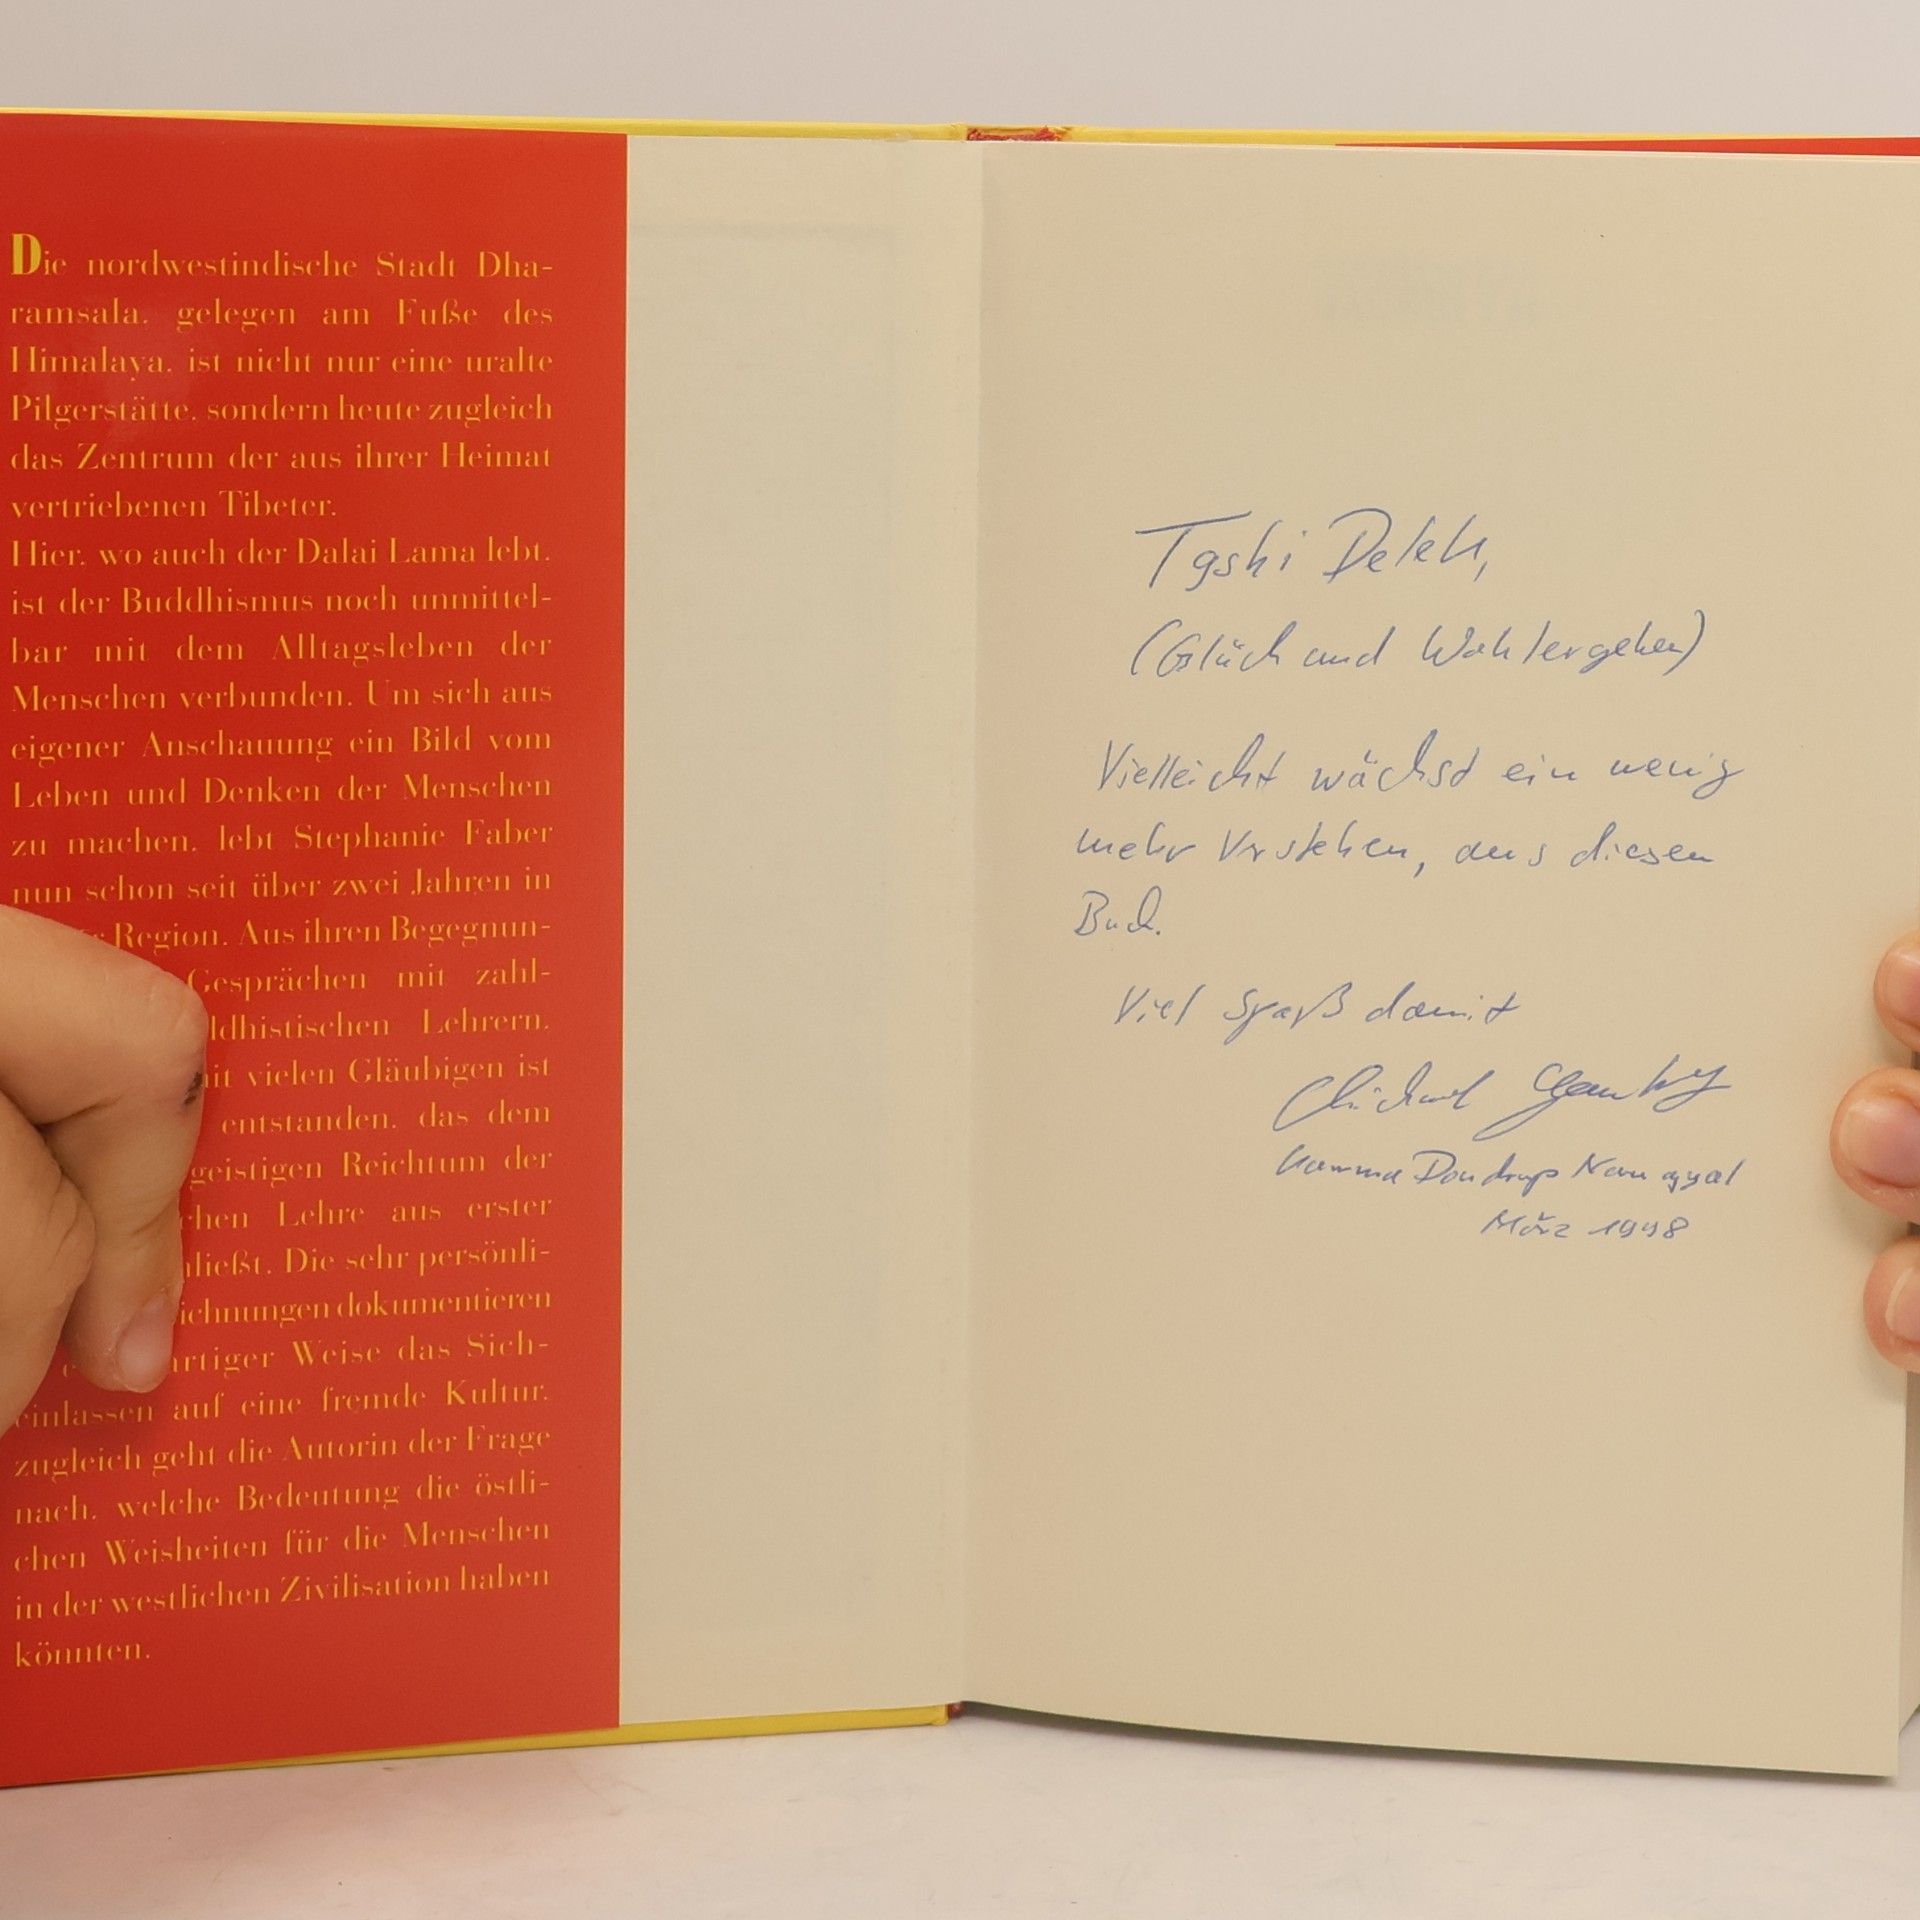 Die nordwestindische Stadt Dha-
ramsala, gelegen am Fuße des
Himalaya, ist nicht nur eine uralte
Pilgerstätte, sondern heute zugleich
das Zentrum der aus ihrer Heimat
vertriebenen Tibeter.
Hier, wo auch der Dalai Lama lebt,
ist der Buddhismus noch unmittel-
bar mit dem Alltagsleben der
Menschen verbunden. Um sich aus
eigener Anschauung ein Bild vom
Leben und Denken der Menschen
zu machen, lebt Stephanie Faber
nun schon seit über zwei Jahren in
Region. Aus ihren Begegnun-
Gesprächen mit zahl-
ldhistischen Lehrern,
it vielen Gläubigen ist
entstanden, das dem
geistigen Reichtum der
chen Lehre aus erster
ließt. Die sehr persönli-
ichnungen dokumentieren
artiger Weise das Sich-
einlassen auf eine fremde Kultur,
zugleich geht die Autorin der Frage
nach, welche Bedeutung die östli-
chen Weisheiten für die Menschen
in der westlichen Zivilisation haben
könnten.
Tashi Delek,
(Glück und Wohlergehen)
Vielleicht wächst ein wenig
mehr Verstehen, aus diesen
Buch.
Viel Spaß damit
Karma Dondrup Namgyal
März 1998